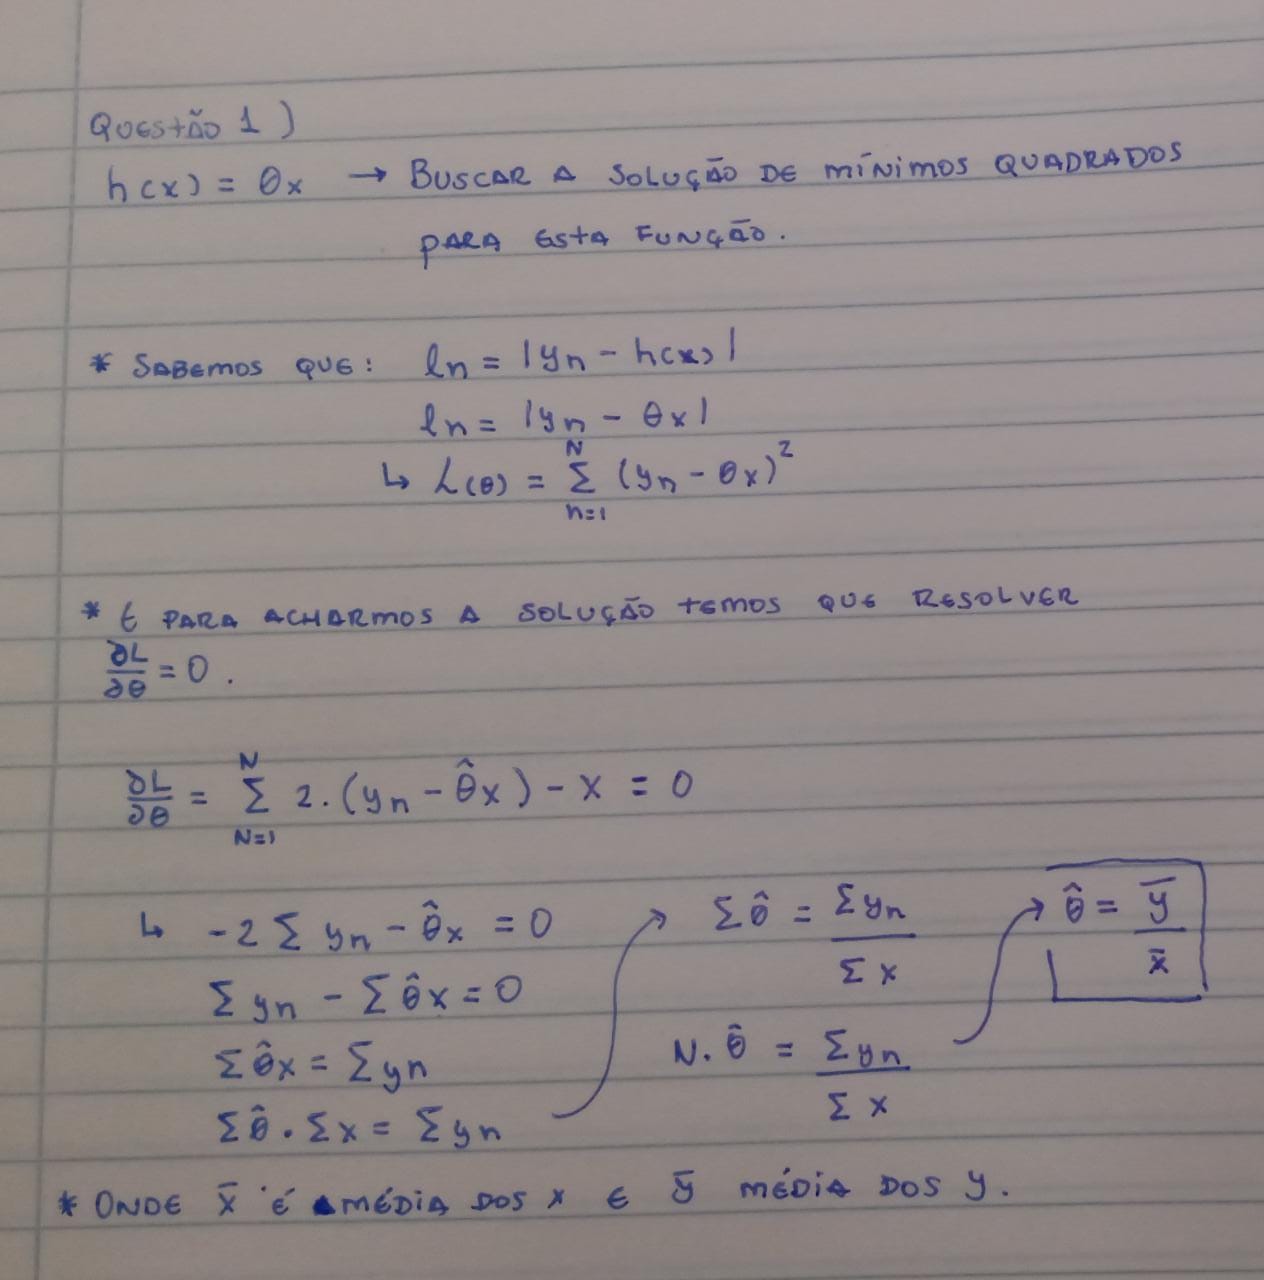 Questão 1)
h(x) = θx → Buscar a solução de mínimos quadrados
para esta função.
* Sabemos que: ln = |yn - h(x)|
ln = |yn - θx|
↳ L(θ) = N Σ n=1 (yn - θx)²
* E para acharmos a solução temos que resolver
∂L/∂θ = 0.
∂L/∂θ = N Σ N=1 2.(yn - θ̂x) - x = 0
↳ -2 Σ yn - θ̂x = 0
Σ yn - Σ θ̂x = 0
Σ θ̂x = Σ yn
Σ θ̂ . Σ x = Σ yn
Σ θ̂ = Σ yn / Σ x
N. θ̂ = Σ yn / Σ x
→ θ̂ = ȳ / x̄
* Onde x̄ é a média dos x e ȳ média dos y.